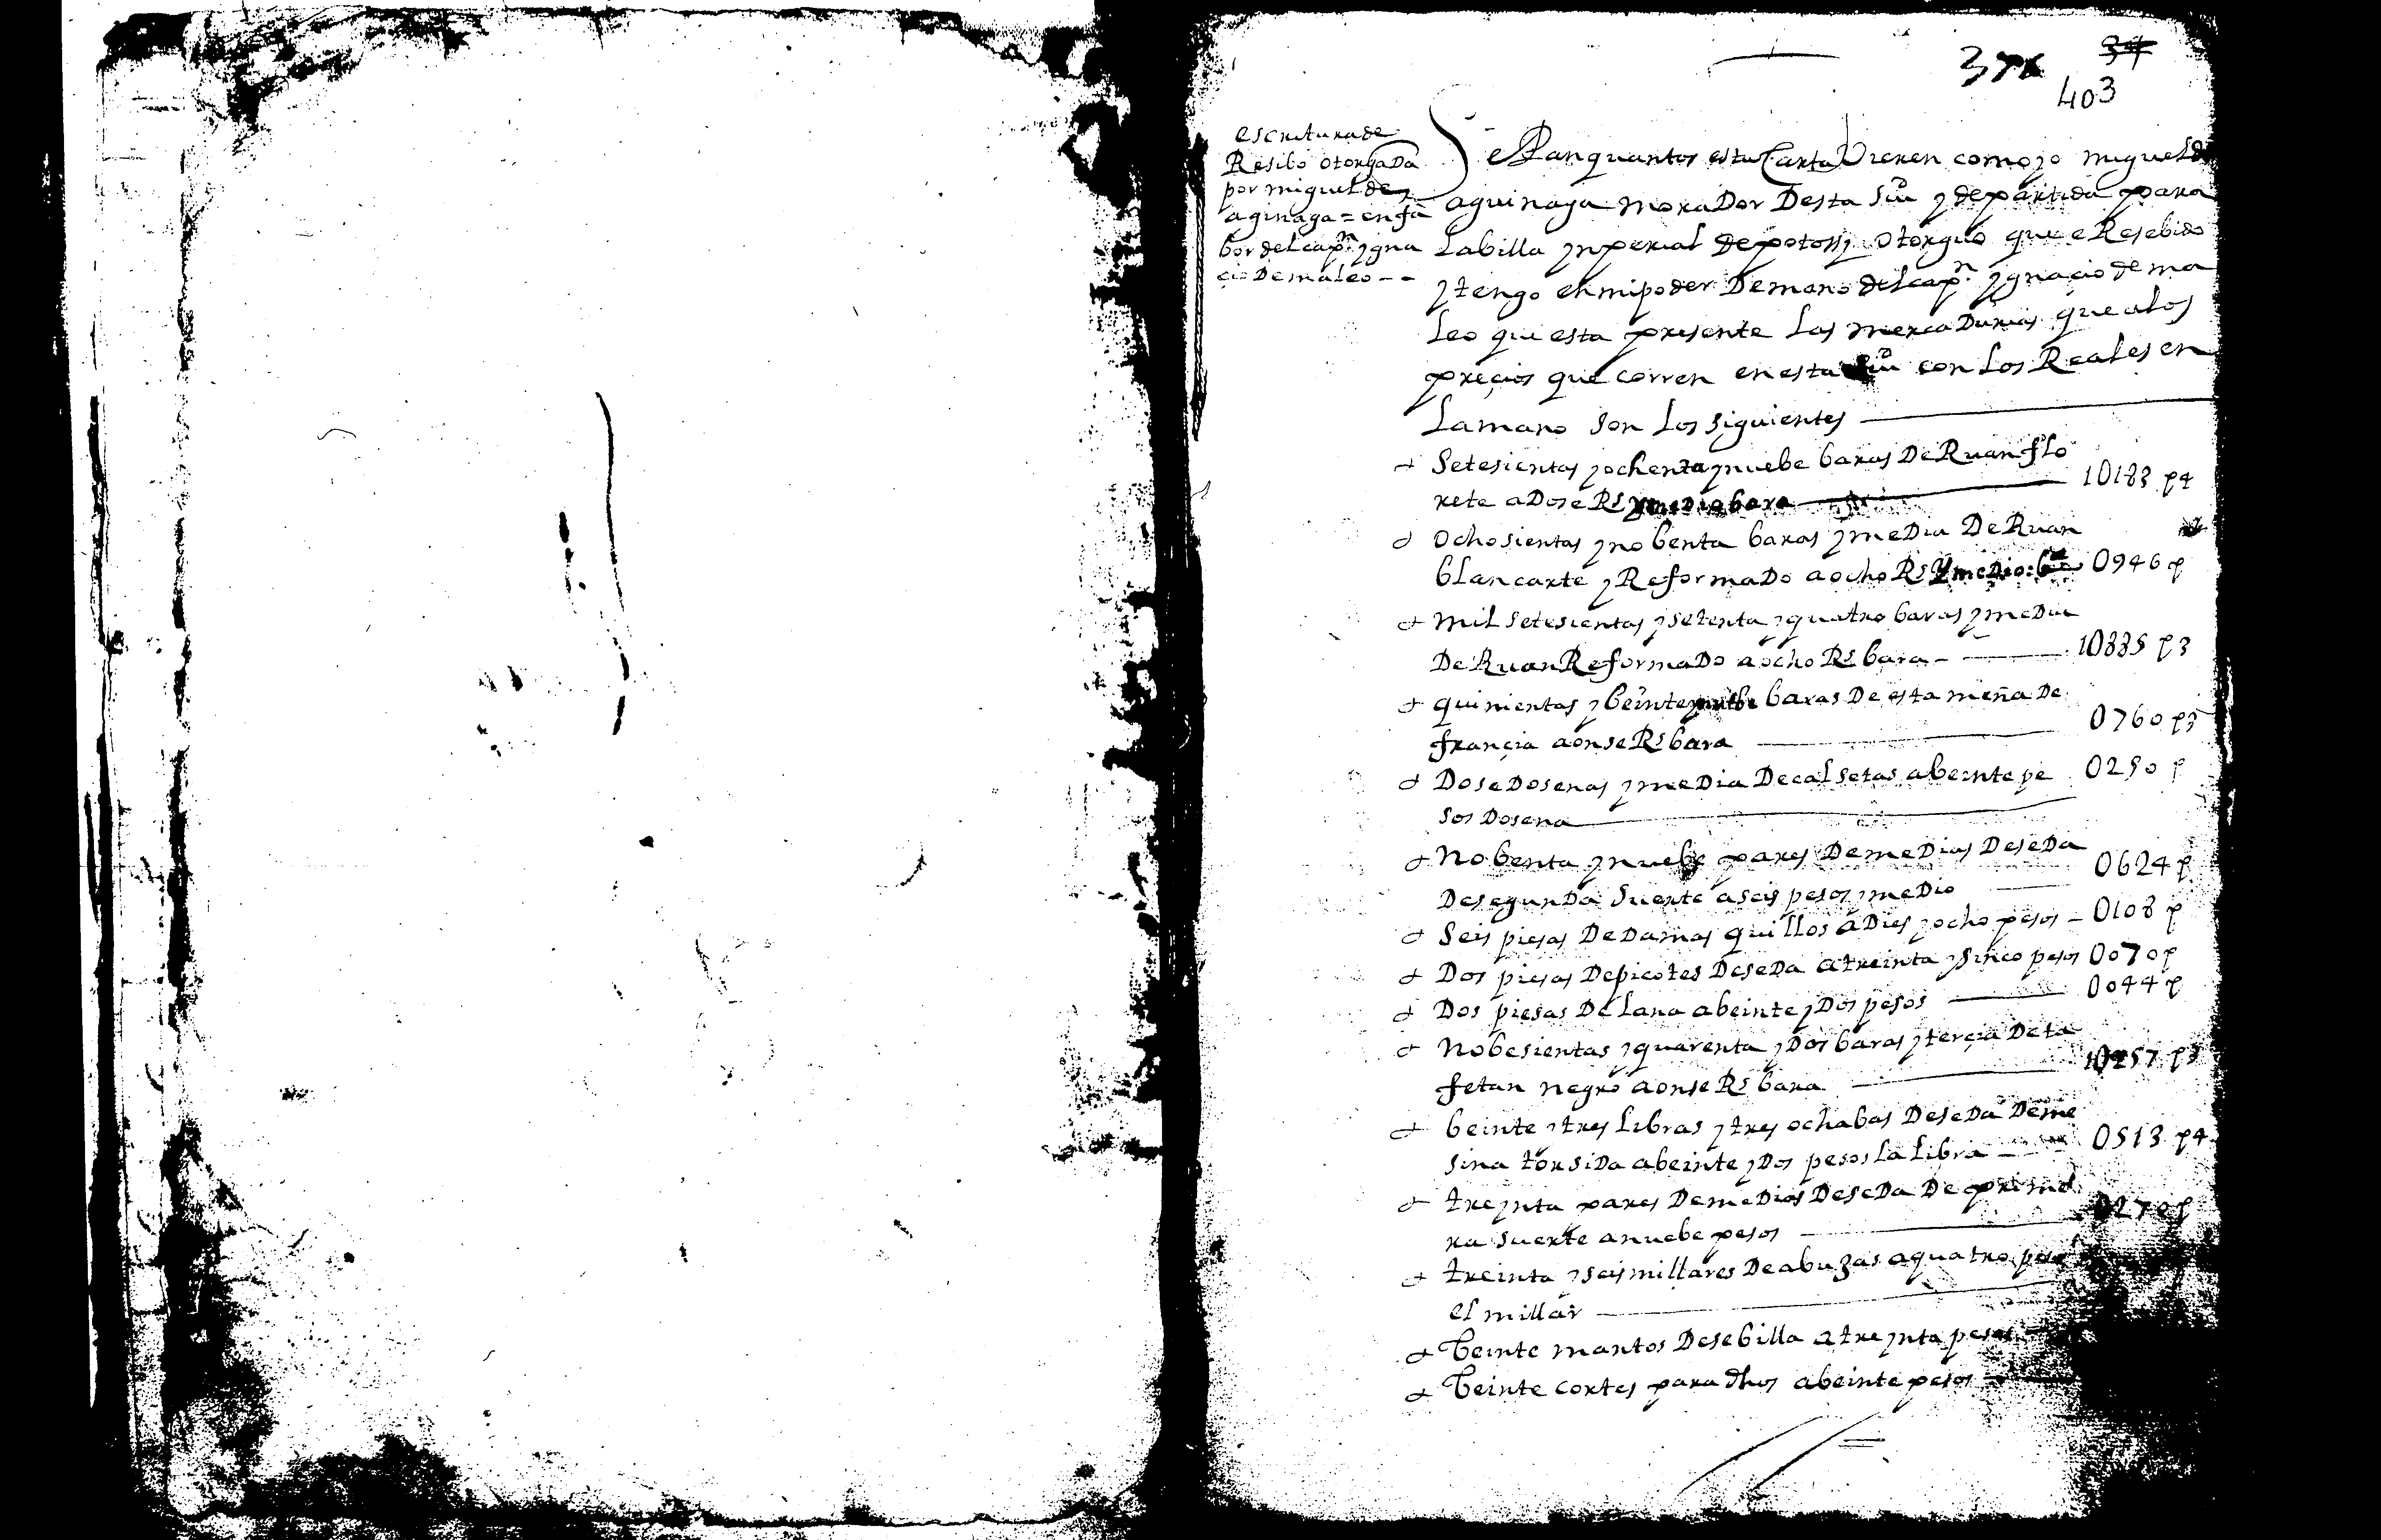 34
403
escritura de
Resibo otorgada
por miguel de
aginaga = en fa
bor del capn ygna
çio De maleo - -
Sepan quantos esta Carta Vieren como yo miguel de
aguinaga moraDor Desta Ciu y de partida para
la billa ynperial de potossy otorguo que e Resebido
y tengo en mi poder De mano del capn ygnacio de ma
leo que esta presente las mercaDurias que a los
preçios que corren en esta Ciu con los Reales en
la mano son los siguientes
Setesientas y ochenta y nuebe baras De Ruan flo
rete a Dose Rs y medio bara 1U183 p4
ochosientas y nobenta baras y meDia De Ruan
blancarte y ReformaDo a ocho Rs y medio ba 0946 p
mil setesientas y setenta y quatro baras y meDia
De Ruan ReformaDo a ocho Rs bara - 1U885 p3
quinientas y beinte baras De estameña De
françia a onse Rs bara 0760 p3
Dose Dosenas y meDia De calsetas a beinte pe 0250 p
sos Dosena
Nobenta y nuebe pares De meDias De seDa
De segunDa suerte a seis pesos y meDio 0624 p
Seis piesas De Damasquillos a Dies y ocho pesos - 0108 p
Dos piesas De picotes De seDa a treinta y sinco pesos 0070 p
Dos piesas De lana a beinte y Dos pesos 0044 p
Nobesientas y quarenta y Dos baras y terçia De ta
fetan negro a onse Rs bara p3
beinte y tres libras y tres ochabas De seDa De me
sina torsiDa a beinte y Dos pesos la libra 0513 p4
treynta pares De meDias De seDa De prime
ra suerte a nuebe pesos 0270 p
treinta y seis millares De abuzas a quatro pesos
el millar
beinte mantos De sebilla a treynta pesos
beinte cortes para dhos a beinte pesos